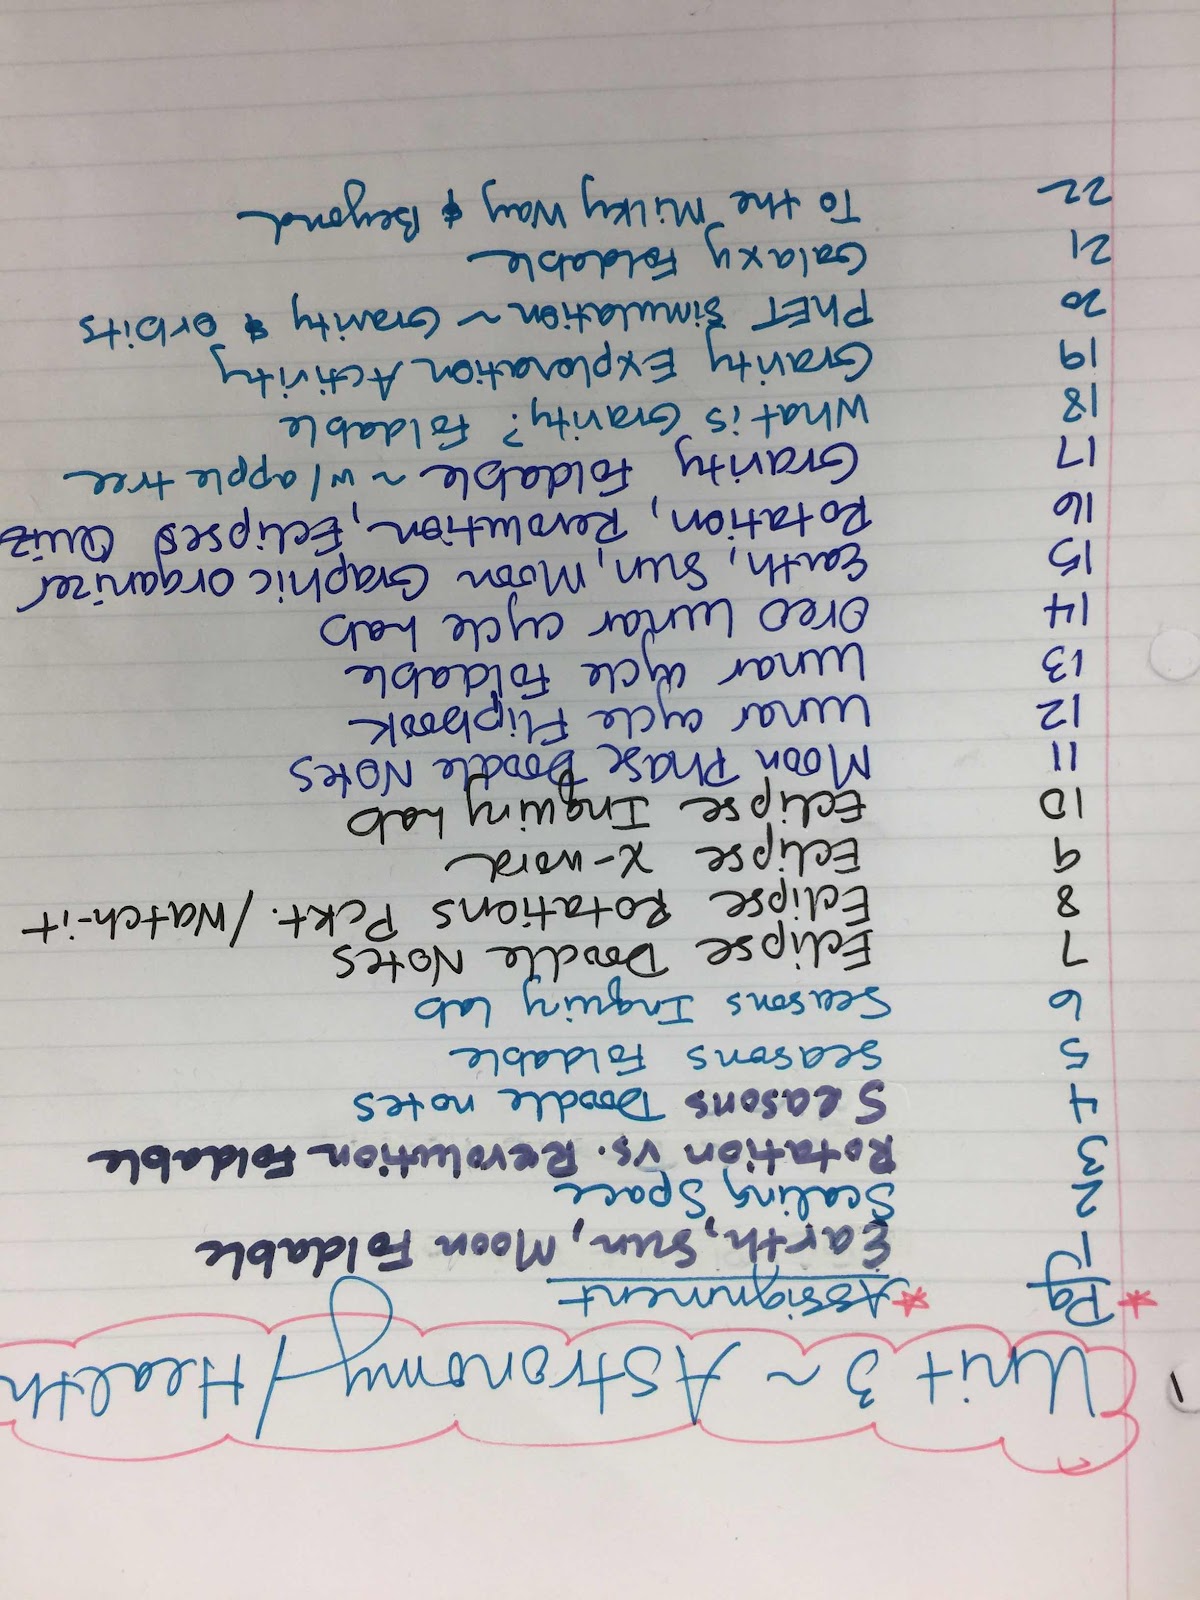 Unit 3 ~ Astronomy/Health
*Pg *Assignment
1 Earth, Sun, Moon Foldable
2 Scaling Space
3 Rotation vs. Revolution Foldable
4 Seasons Doodle notes
5 Seasons Foldable
6 Seasons Inquiry Lab
7 Eclipse Doodle Notes
8 Eclipse Rotations Pckt./Watch-it
9 Eclipse x-word
10 Eclipse Inquiry Lab
11 Moon Phase Doodle Notes
12 Lunar cycle Flipbook
13 Lunar cycle Foldable
14 Oreo Lunar cycle Lab
15 Earth, Sun, Moon Graphic Organizer
16 Rotation, Revolution, Eclipses Quiz
17 Gravity Foldable ~ w/apple tree
18 What is Gravity? Foldable
19 Gravity Exploration Activity
20 PhET Simulation ~ Gravity & Orbits
21 Galaxy Foldable
22 To the Milky Way & Beyond